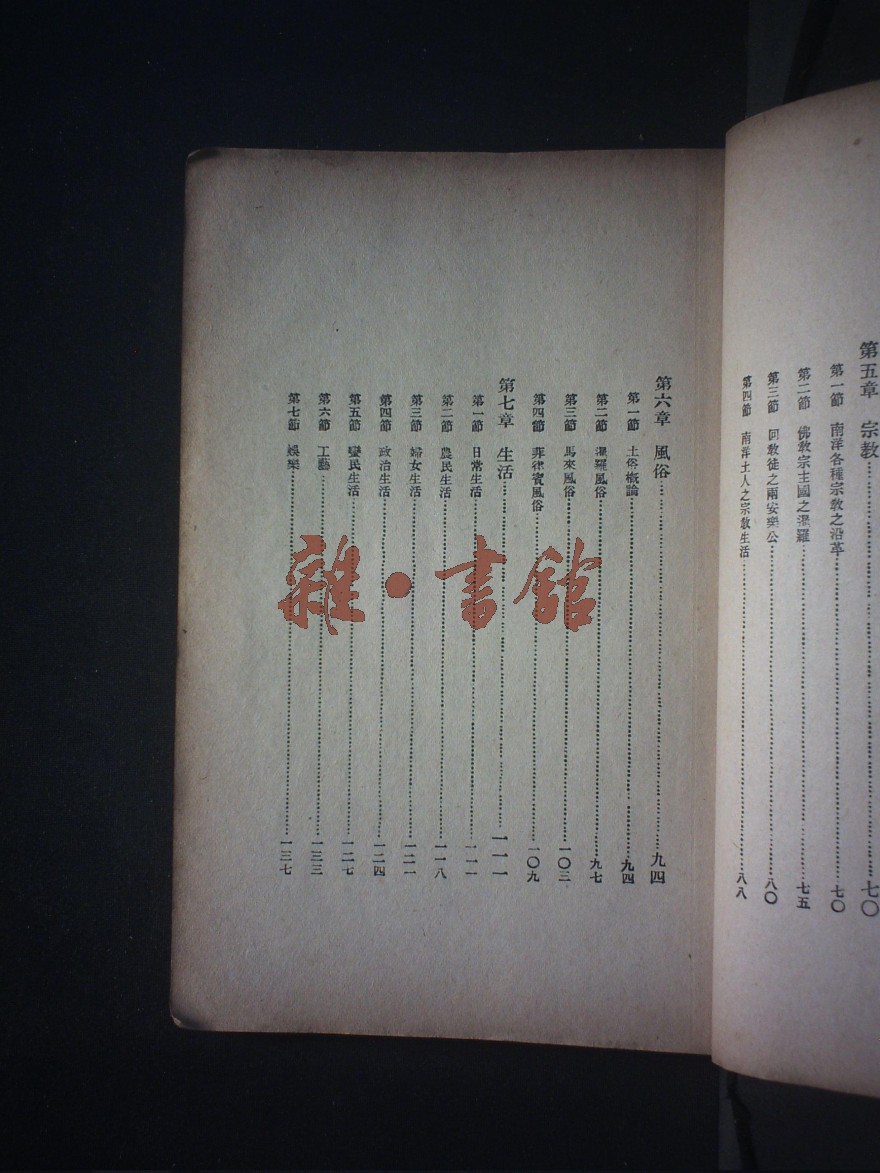 第五章 宗教……七〇
第一節 南洋各種宗教之沿革……七〇
第二節 佛敎宗主國之暹羅……七五
第三節 回敎徒之兩安樂公……八〇
第四節 南洋土人之宗敎生活……八八
第六章 風俗……九四
第一節 土俗概論……九四
第二節 暹羅風俗……九七
第三節 馬來風俗……一〇三
第四節 菲律賓風俗……一〇九
第七章 生活……一一一
第一節 日常生活……一一一
第二節 農民生活……一一八
第三節 婦女生活……一二一
第四節 政治生活……一二四
第五節 蠻民生活……一二七
第六節 工藝……一三三
第七節 娛樂……一三七
雜·書館